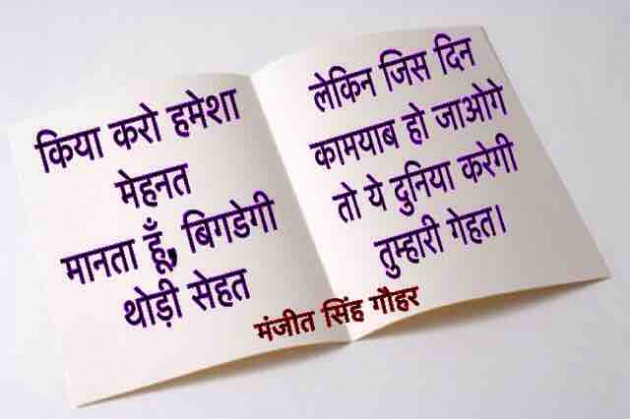 किया करो हमेशा
मेहनत
मानता हूँ, बिगडेगी
थोड़ी सेहत
लेकिन जिस दिन
कामयाब हो जाओगे
तो ये दुनिया करेगी
तुम्हारी गेहत।
मंजीत सिंह गौहर